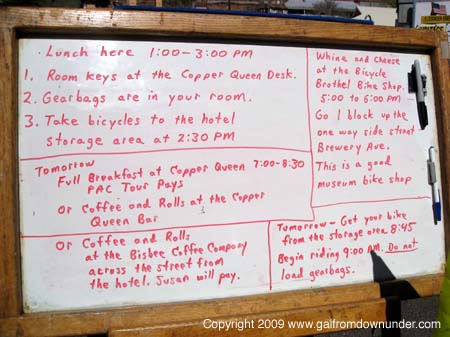 Lunch here 1:00-3:00 PM
1. Room keys at the Copper Queen Desk.
2. Gearbags are in your room.
3. Take bicycles to the hotel
storage area at 2:30 PM
Whine and Cheese
at the Bicycle
Brothel Bike Shop.
5:00 to 6:00 PM
Go 1 block up the
one way side street
Brewery Ave.
This is a good
museum bike shop
Tomorrow
Full Breakfast at Copper Queen 7:00-8:30
PAC Tour Pays
Or Coffee and Rolls at the Copper
Queen Bar
Or Coffee and Rolls
at the Bisbee Coffee Company
across the street from
the hotel. Susan will pay.
Tomorrow - Get your bike
from the storage area 8:45
Begin riding 9:00 AM. Do not
load gearbags.
Copyright 2009 www.galfromdownunder.com